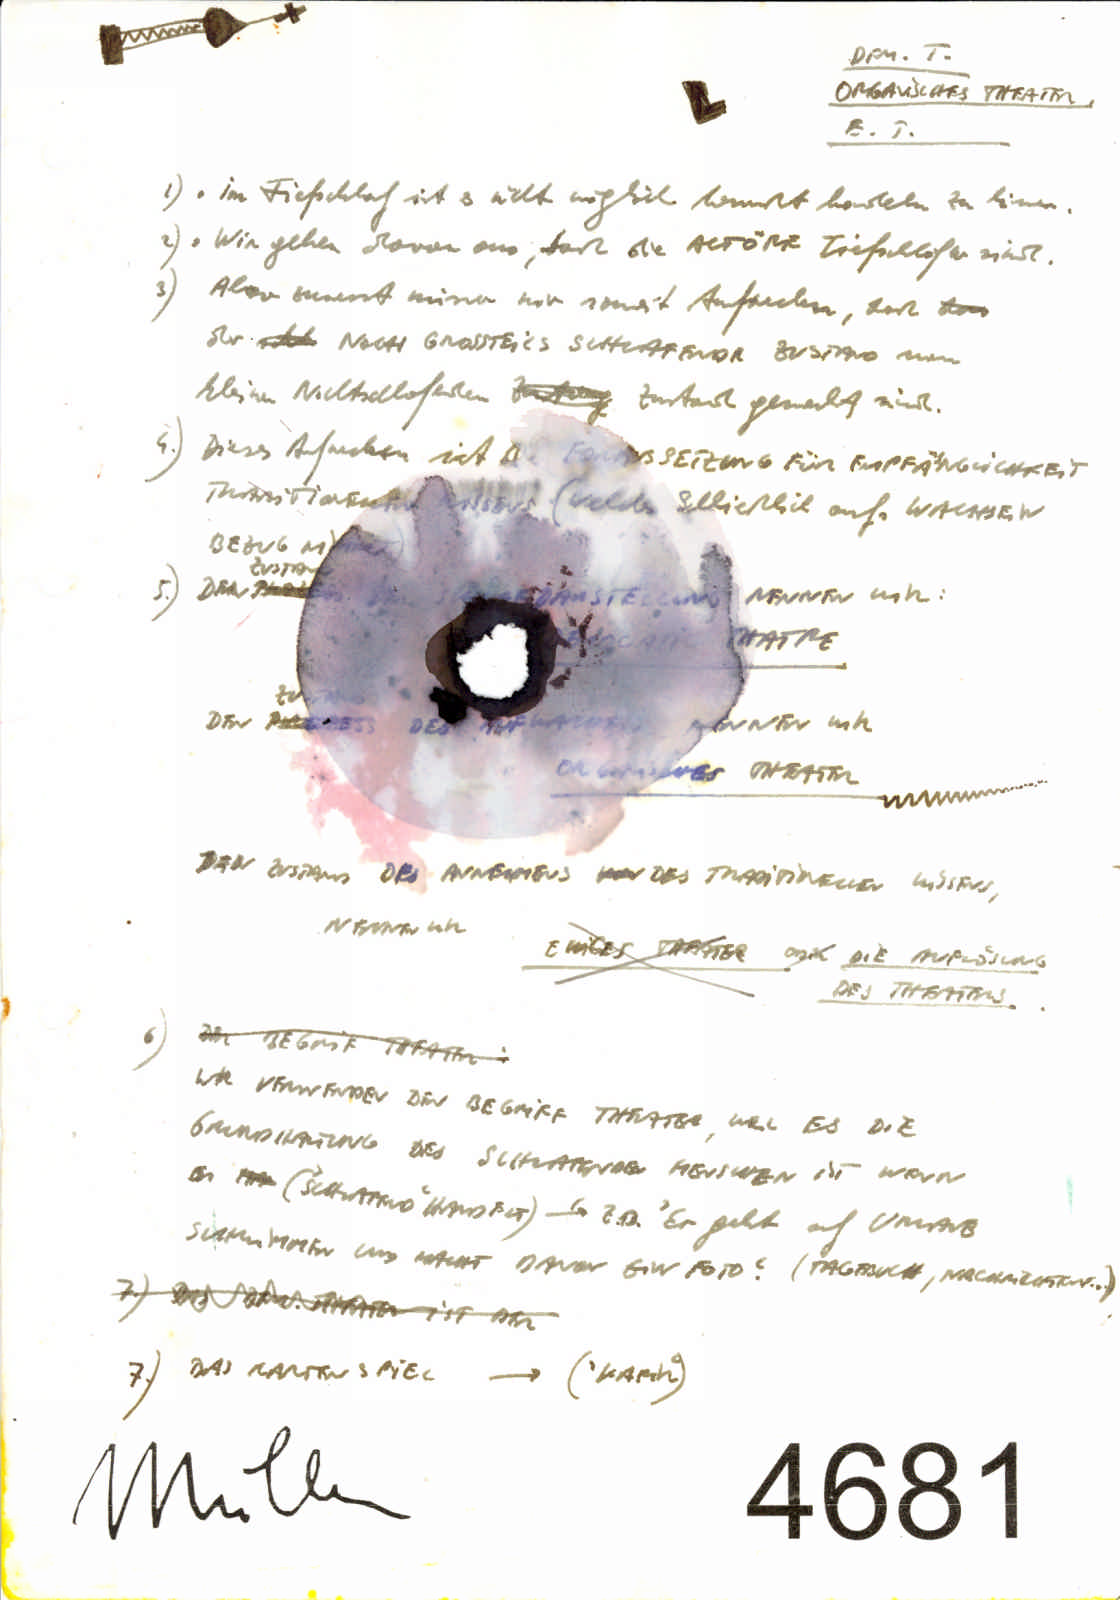 DEM. T.
ORGANISCHES THEATER
E. T.
1) • im Tiefschlaf ist es nicht möglich bewusst handeln zu können.
2) • Wir gehen davon aus, dass die ACTÖRE Tiefschläfer sind.
3) Also müssen wir soweit Aufwecken, dass
der NOCH GROSSTEILS SCHLAFENDER ZUSTAND
kleinen Nichtschlafenden Zustand gemerkt wird.
4.) Dieses Aufwecken ist die VORAUSSETZUNG FÜR EMPFÄNGLICHKEIT
TRADITIONELLEN WISSENS (welches Schließlich aufs WACHSEIN
BEZUG NIMMT)
ZUSTAND
5.) DEN DER DARSTELLUNG NENNEN WIR:
THEATRE
ZUSTAND
DEN PROZESS DES AUFWACHENS NENNEN WIR
ORGANISCHES THEATER
DEN ZUSTAND DES ANNEHMENS DES TRADITIONELLEN WISSENS,
NENNEN WIR
EWIGES THEATER ODER DIE AUFLÖSUNG
DES THEATERS.
6) DER BEGRIFF THEATER:
WIR VERWENDEN DEN BEGRIFF THEATER, WEIL ES DIE
GRUNDHALTUNG DES SCHLAFENDEN MENSCHEN IST WENN
ER ("SCHLAFEND" HANDELT) → Z.B. "Er geht auf URLAUB
SCHWIMMEN UND MACHT DAVON EIN FOTO" (TAGEBUCH, NACHRICHTEN...)
7.) DAS DEM. THEATER IST DER
7.) DAS KARTENSPIEL → ("KAPIK")
Müller
4681